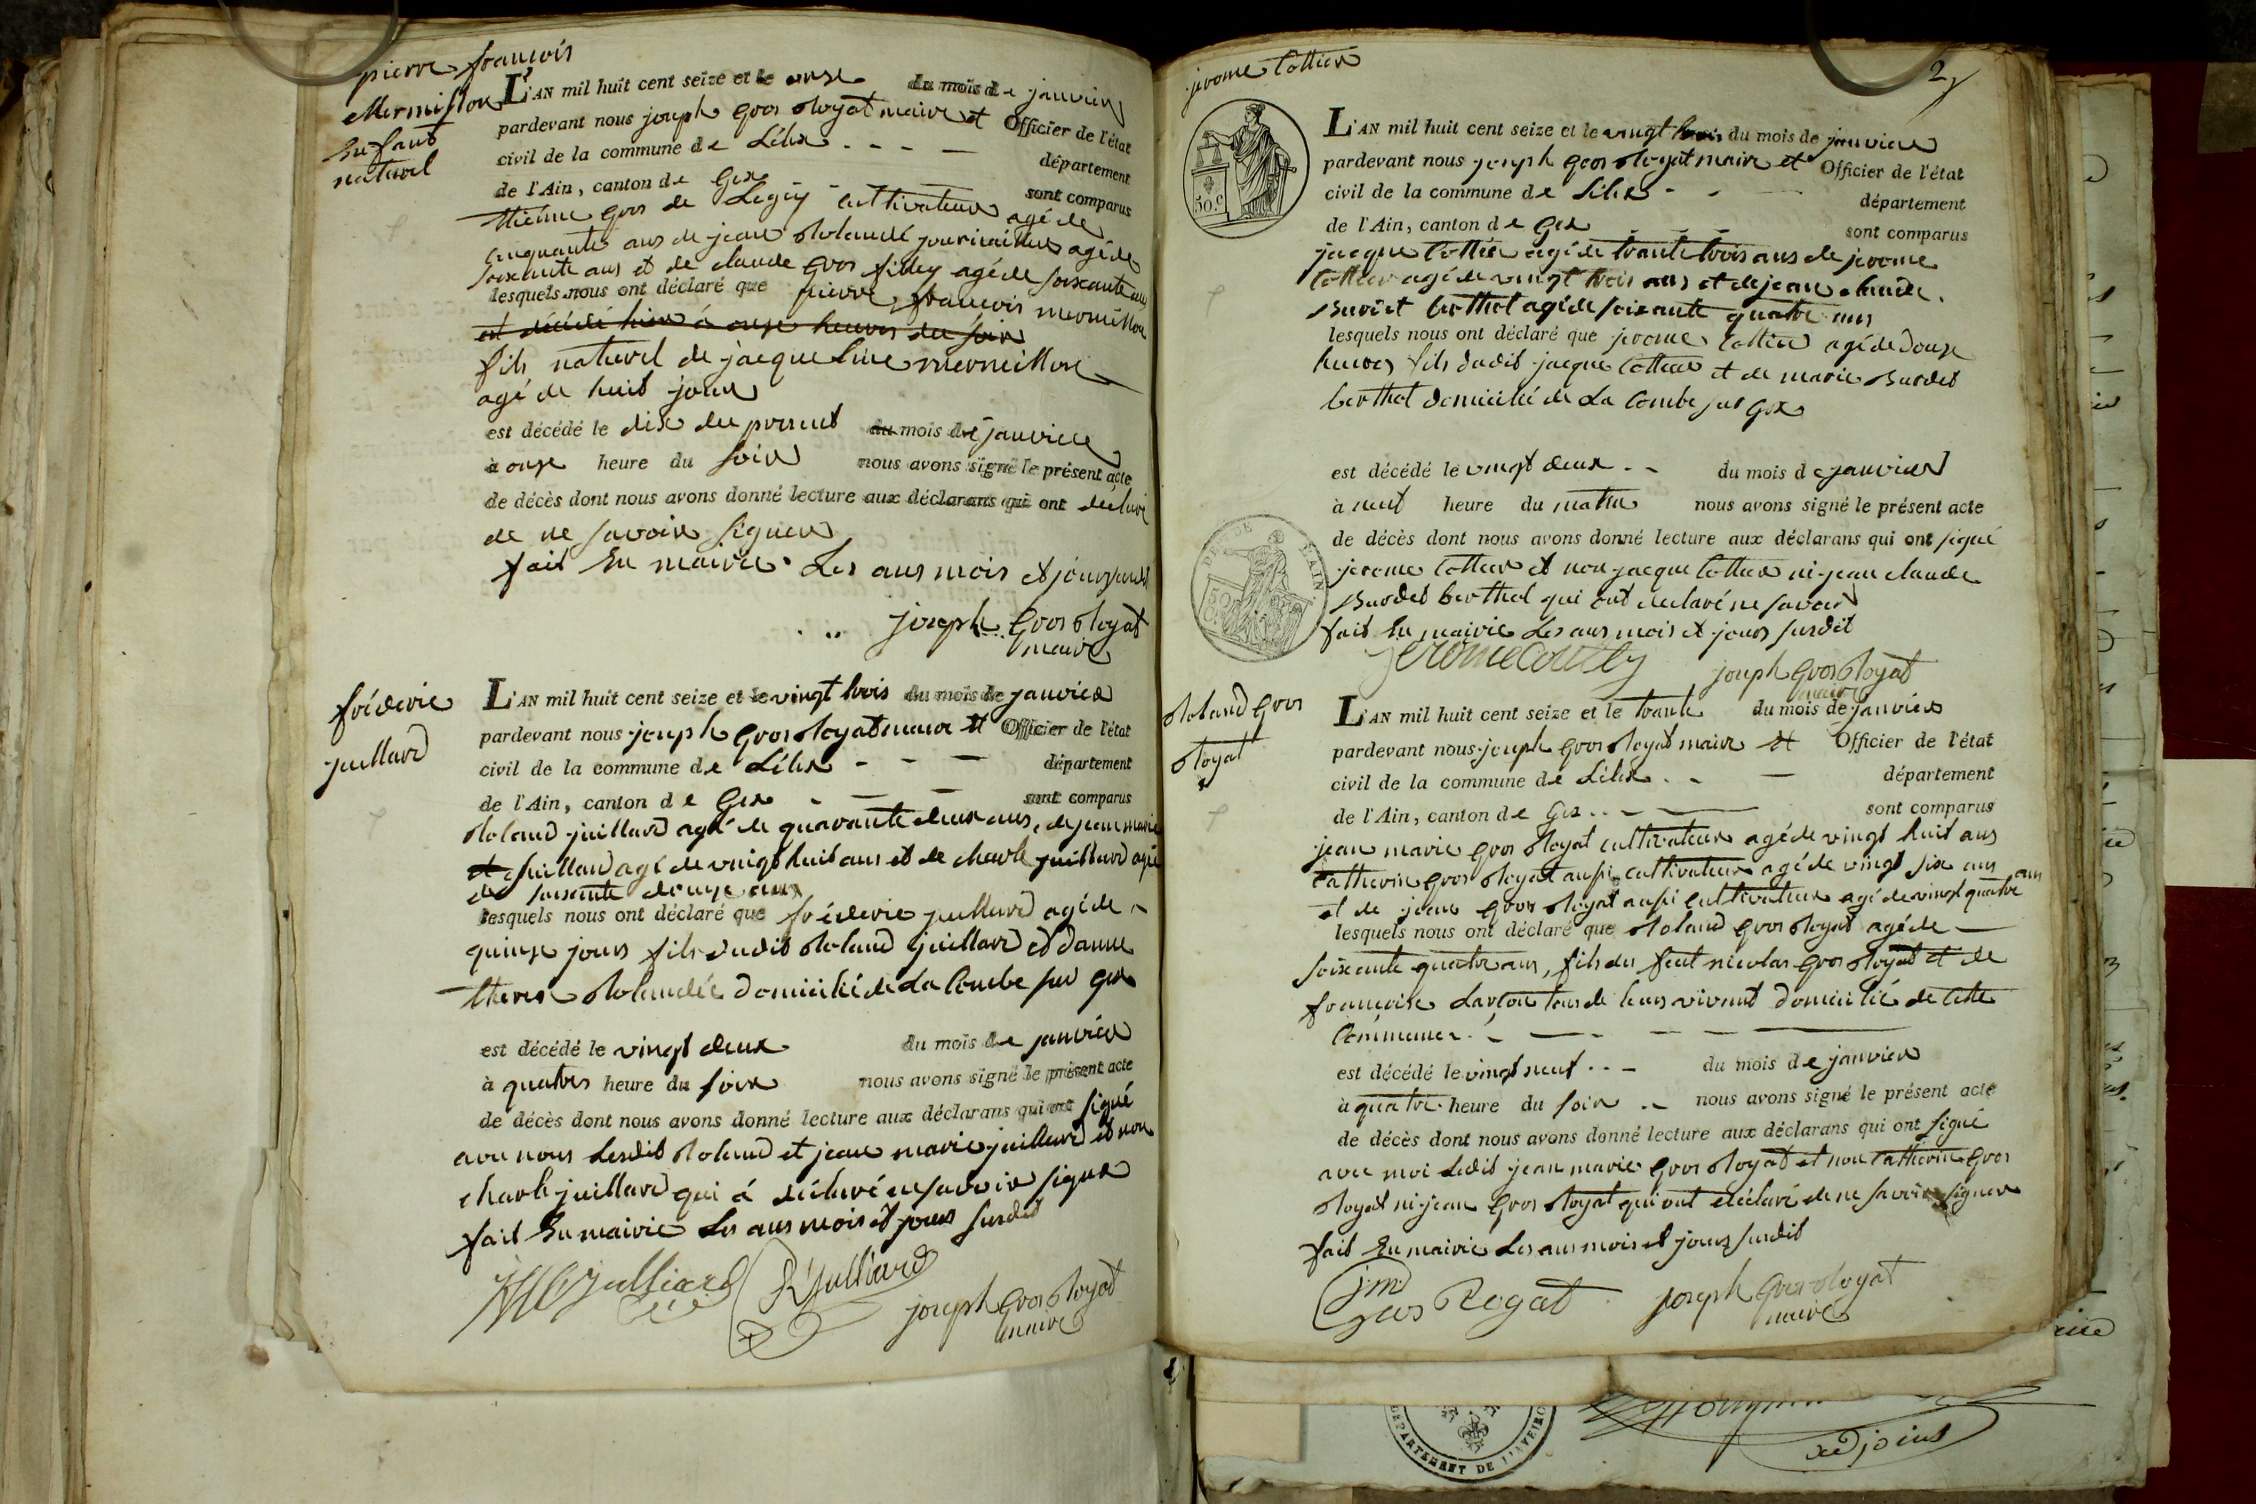 pierre françois
Mermillon
Enfant
naturel
L'AN mil huit cent seize et le onze du mois de janvier
pardevant nous joseph gros Royat maire et Officier de l'état
civil de la commune de Lélex département
de l'Ain, canton de Gex sont comparus
gros de cultivateur agé de
cinquante ans de jean Rolandé agé de
soixante ans et de claude gros agé de soixante ans
lesquels nous ont déclaré que pierre françois mermillon
est décédé hier à onze heures du soir
fils naturel de jacqueline mermillon
agé de huit jours
est décédé le dix du present du mois de janvier
à onze heure du soir nous avons signé le présent acte
de décès dont nous avons donné lecture aux déclarans qui ont déclaré
de ne savoir signer
fait En mairie Les ans mois et jours susdit
joseph gros Royat
maire
fréderic
juillard
L'AN mil huit cent seize et le vingt trois du mois de janvier
pardevant nous joseph gros Royat maire et Officier de l'état
civil de la commune de Lélex département
de l'Ain, canton de Gex sont comparus
Roland juillard agé de quarante deux ans, de jean marie
et juillard agé de vingt huit ans et de charle juillard agé
de soixante douze ans
lesquels nous ont déclaré que fréderic juillard agé de
quinze jours fils dudit Roland juillard et d'anne
therese Rolandée domicilié de La Combe sur gex
est décédé le vingt deux du mois de janvier
à quatres heure du soir nous avons signé le présent acte
de décès dont nous avons donné lecture aux déclarans qui ont signé
avec nous Lesdit Roland et jean marie juillard et non
charle juillard qui à déclaré ne savoir signer
fait En mairie Les ans mois et jours susdit
Julliard R Julliard
joseph gros Royat
maire
jerome Cottier
2
L'AN mil huit cent seize et le vingt trois du mois de janvier
pardevant nous joseph gros Royat maire et Officier de l'état
civil de la commune de Lélex département
de l'Ain, canton de Gex sont comparus
jacque Cottier agé de trante trois ans de jerome
Cottier agé de vingt trois ans et de jean claude
Burdet berthet agé de soixante quatre ans
lesquels nous ont déclaré que jerome Cottier agé de douze
heures fils dudit jacque Cottier et de marie Burdet
berthet domicilié de La Combe sur gex
est décédé le vingt deux du mois de janvier
à neuf heure du matin nous avons signé le présent acte
de décès dont nous avons donné lecture aux déclarans qui ont signé
jerome Cottier et non jacque Cottier ni jean claude
Burdet berthet qui ont declaré ne savoir
fait En mairie Les ans mois et jours susdit
joseph gros Royat
maire
50.c
AIN
Roland gros
Royat
L'AN mil huit cent seize et le trante du mois de janvier
pardevant nous joseph gros Royat maire et Officier de l'état
civil de la commune de Lélex département
de l'Ain, canton de Gex sont comparus
jean marie gros Royat cultivateur agé de vingt huit ans
Catherin gros Royat aussi cultivateur agé de vingt six ans
et de jean gros Royat aussi Cultivateur agé de vingt quatre ans
lesquels nous ont déclaré que Roland gros Royat agé de
soixante quatre ans, fils du feut nicolas gros Royat et de
françoise tous de leurs vivant domicilié de cette
Commune
est décédé le vingt neuf du mois de janvier
à quatre heure du soir nous avons signé le présent acte
de décès dont nous avons donné lecture aux déclarans qui ont signé
avec moi Ledit jean marie gros Royat et non Catherin gros
Royat ni jean gros Royat qui ont déclaré de ne savoir signer
fait En mairie Les ans mois et jours susdit
jm
gros Royat joseph gros Royat
maire
DEPARTEMENT DE L'AVEYRON
adjoint